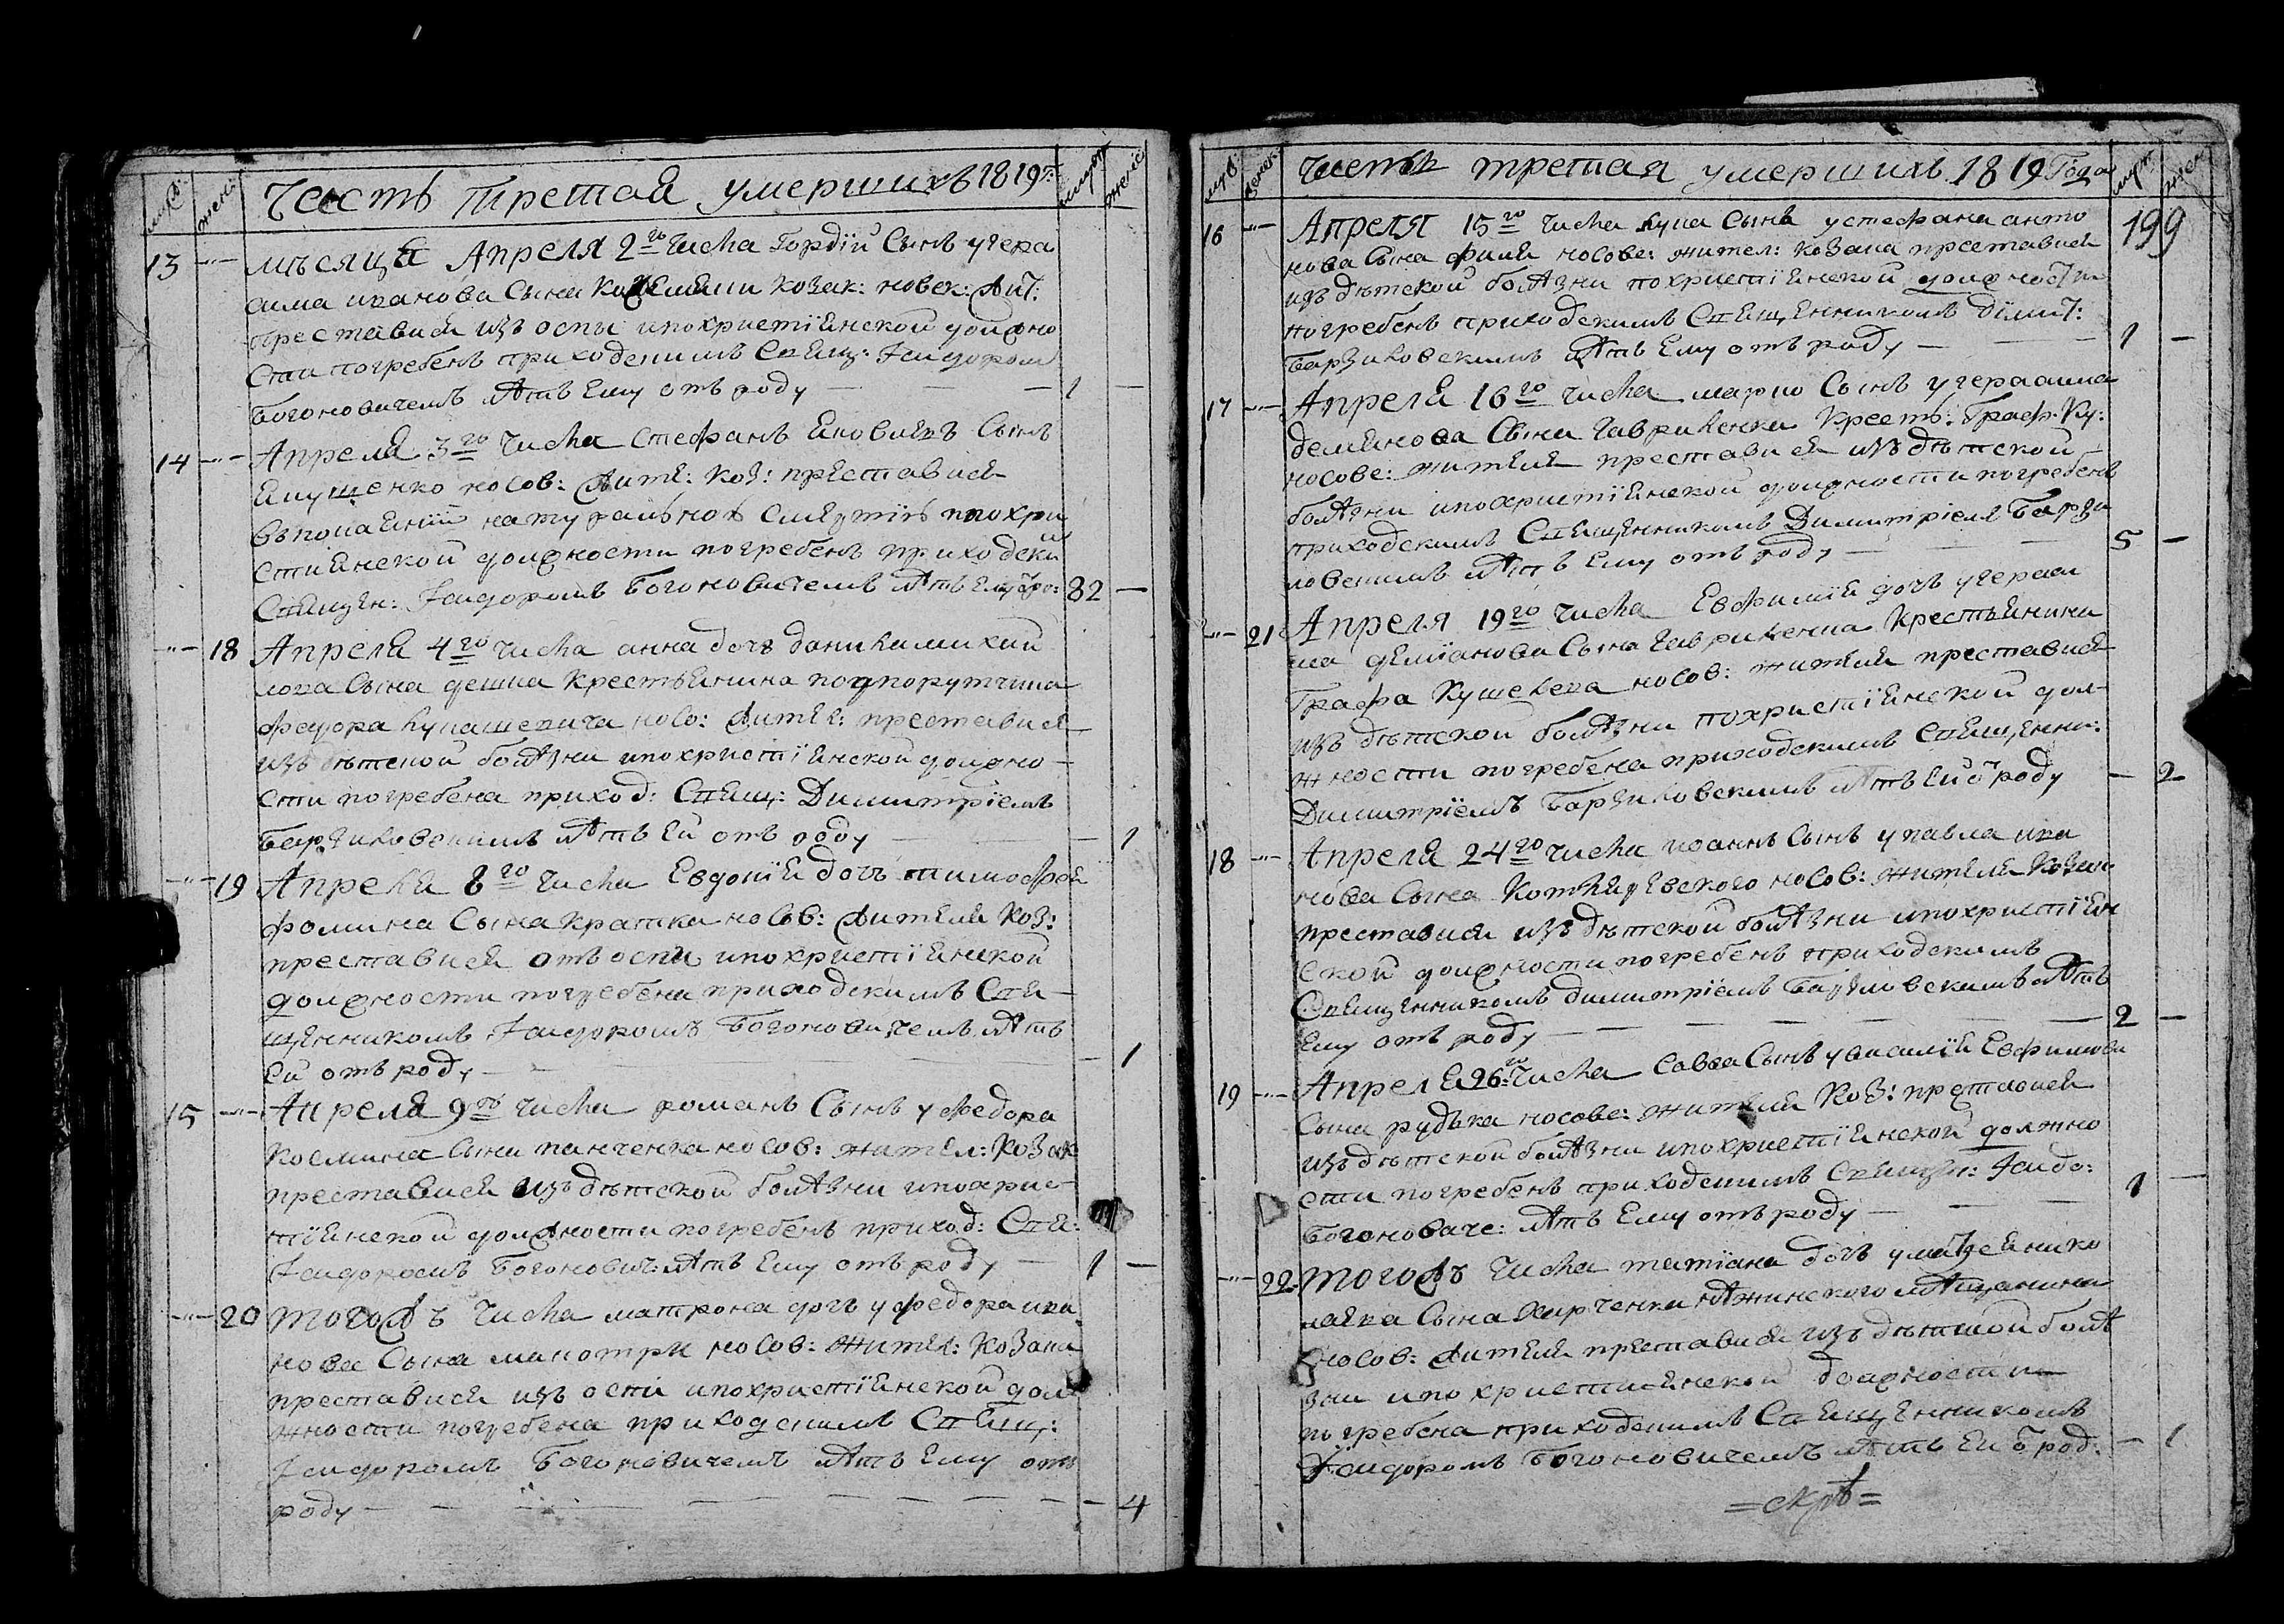 муж: жен: Часть третая умершихъ 1819: муж: женс:
13 мѣсяца Апреля 2го числа Гордїй Сынъ у гера
сима иванова Сына козак: носов: жит:
преставися изъ оспы и по христїянской должно
сти погребенъ приходскимъ Свящ: Їсидоромъ
Богоновичемъ лѣтъ Ему отъ роду 1
14 Апреля 3го числа Стефанъ Яковлевъ Сынъ
носов: жите: коз: преставися
въ покаянїи натуральною смертїю и по хри
стиянской должности погребенъ приходски
Священ: Їсидоромъ Богоновичемъ лѣтъ Ему 82
18 Апреля 4го числа анна дочь данила михай
лова Сына крестьянина подпорутчика
федора носо: жител: преставися
изъ дѣтской болѣзни и по христїянской должно
сти погребена приход: Свящ: Димитрїемъ
Барзиковскимъ лѣтъ Ей отъ роду 1
19 Апреля 8го числа Евдокїя дочь тимофея
фомина Сына кратка носов: жителя коз:
преставися отъ оспи и по христїянской
должности погребена приходскимъ Свя
щенникомъ Їсидоромъ Богоновичемъ лѣтъ
Ей отъ роду 1
15 Апреля 9го числа романъ Сынъ у федора
космина Сына панченка носов: жител: козак
преставися изъ дѣтской болѣзни и по хрис
тїянской должности погребенъ приход: Свя:
Їсидоромъ Богонович: лѣтъ Ему отъ роду 1
20 тогожъ числа матрона дочь у федора ива
нова Сына носов: жител: козака
преставися изъ оспи и по христїянской дол
жности погребена приходскимъ Свящ:
Їсидоромъ Богоновичемъ лѣтъ Ему отъ
роду 4
муж: женск: часть третая умершихъ 1819 года муж: жен:
199
16 Апреля 15го числа лука Сынъ у стефана анто
нова Сына носовс: жител: козака преставися
изъ дѣтской болѣзни по христїянской должности
погребенъ приходскимъ Священникомъ Димит:
Барзиковскимъ лѣтъ Ему отъ роду 1
17 Апреля 16го числа Сынъ у герасима
демянова Сына Гавриленка Кресть: Граф: Ку:
носовс: жителя преставися изъ дѣтской
болѣзни и по христїянской должности погребенъ
приходскимъ Священникомъ Димитрїемъ Барзи
ковскимъ лѣтъ Ему отъ роду 5
21 Апреля 19го числа Евфимїя дочь у гераси
ма демїанова Сына Гавриленка Крестьянина
Графа Кушелева носов: жителя преставися
изъ дѣтской болѣзни по христїянской дол
жности погребена приходскимъ Священни:
Димитрїемъ Барзиковскимъ лѣтъ Ей роду 2
18 Апреля 24го числа иоаннъ Сынъ у павла ива
нова Сына носов: жителя козак
преставися изъ дѣтской болѣзни и по христїян
ской должности погребенъ приходскимъ
Священникомъ димитрїемъ Барзиковскимъ лѣтъ
Ему отъ роду 2
19 Апреля 26го числа Савва Сынъ у василїя Евфимова
Сына рудька носовс: жителя коз: преставися
изъ дѣтской болѣзни и по христїянской должно
сти погребенъ приходскимъ Священ: Їсидо:
Богоноваче: лѣтъ Ему отъ роду 1
22 тогожъ числа татїана дочь у
Сына Харченка нѣжинского мѣщанина
носов: жителя преставися изъ дѣтской болѣ
зни и по християнской должности
погребена приходскимъ Священникомъ
Їсидоромъ Богоновичемъ лѣтъ Ей род: 1